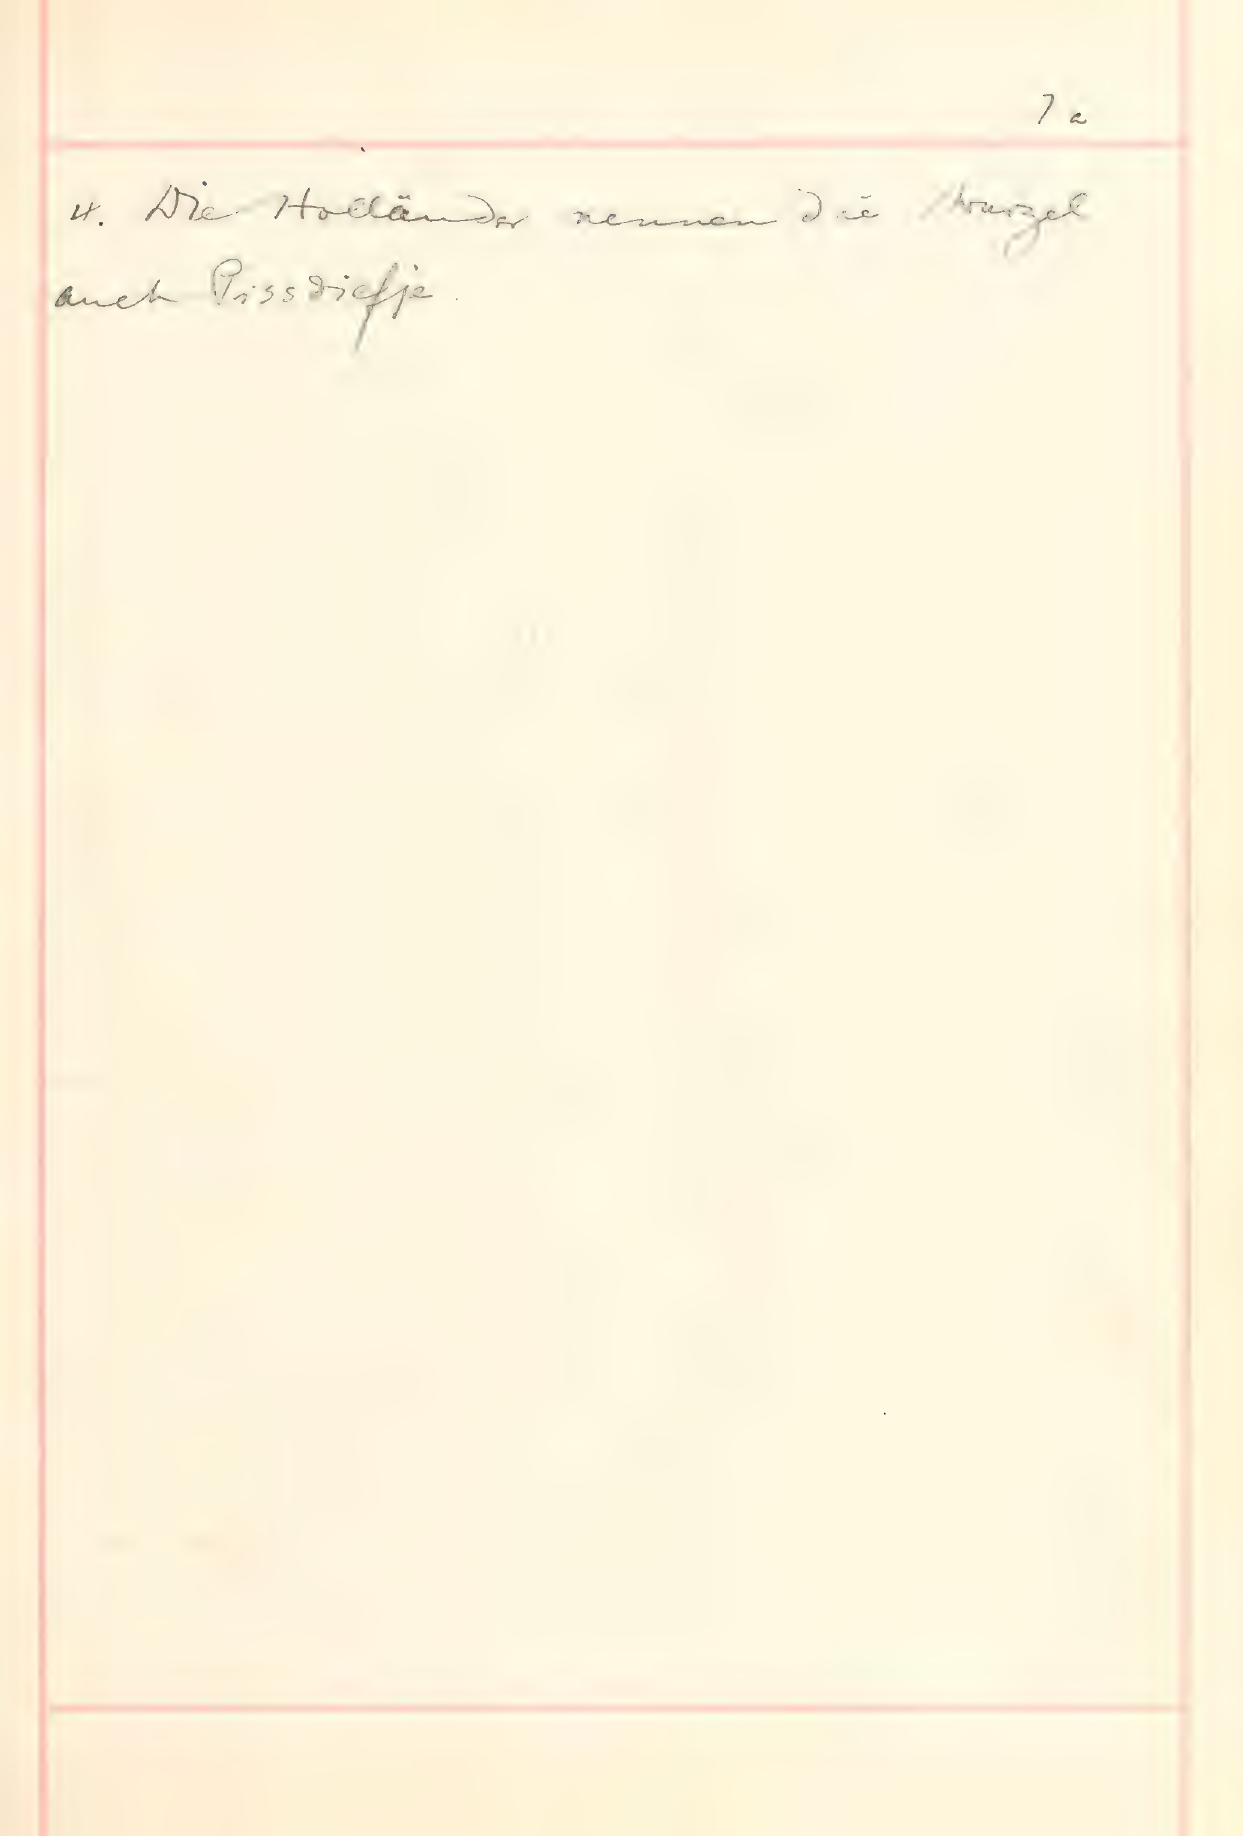 7a
4. Die Holländer nennen die Wurzel
auch Pissdiefje.